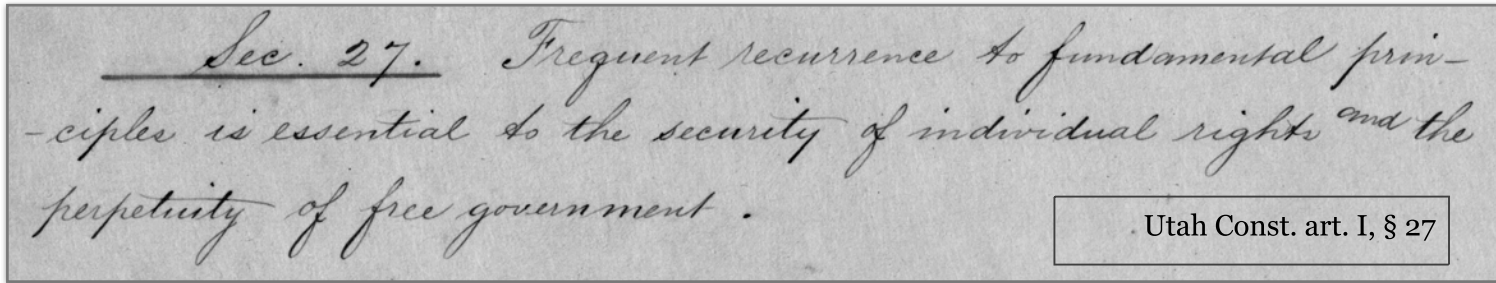 Sec. 27. Frequent recurrence to fundamental prin-
-ciples is essential to the security of individual rights and the
perpetuity of free government.
Utah Const. art. I, § 27